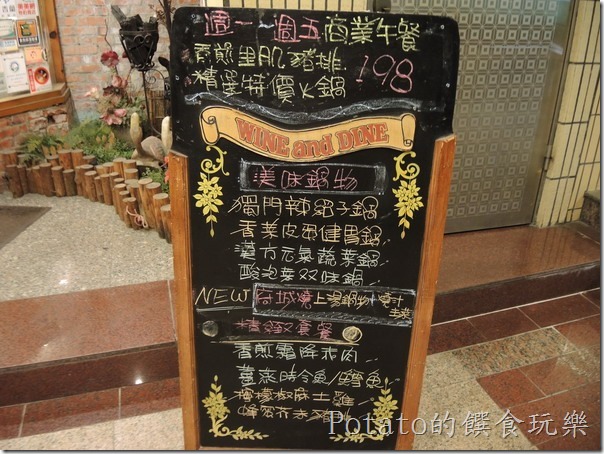 週一~週五商業午餐
香煎里肌豬排
精選特價火鍋 198
WINE and DINE
美味鍋物
獨門辣
香菜皮蛋健胃鍋
漢方元氣蔬菜鍋
酸泡菜双味鍋
NEW
上湯鍋物
精緻套餐
香煎霜降
時令魚/鱈魚
檸檬椒麻土雞
Potato的饌食玩樂